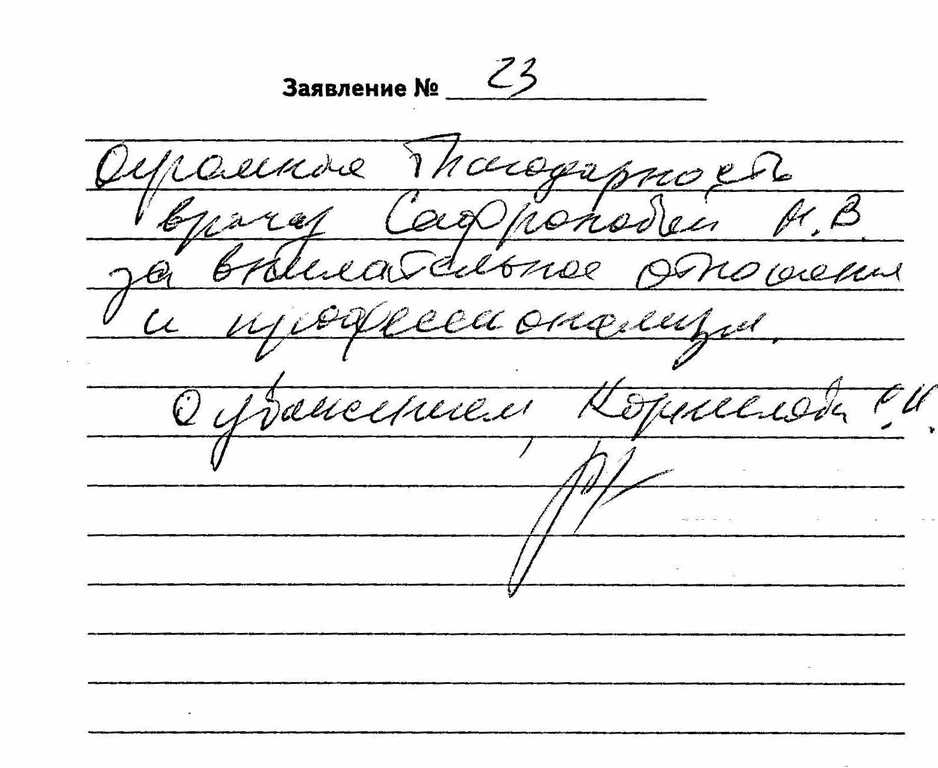 Заявление № 23
Огромная благодарность
врачу Сафроновой Н.В.
за внимательное отношение
и профессионализм.
С уважением, Корнилова